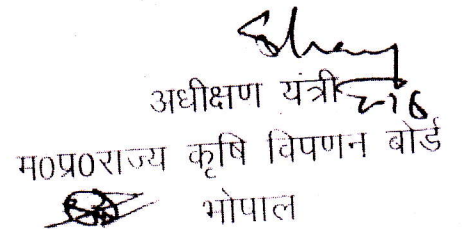 अधीक्षण यंत्री
म०प्र०राज्य कृषि विपणन बोर्ड
भोपाल